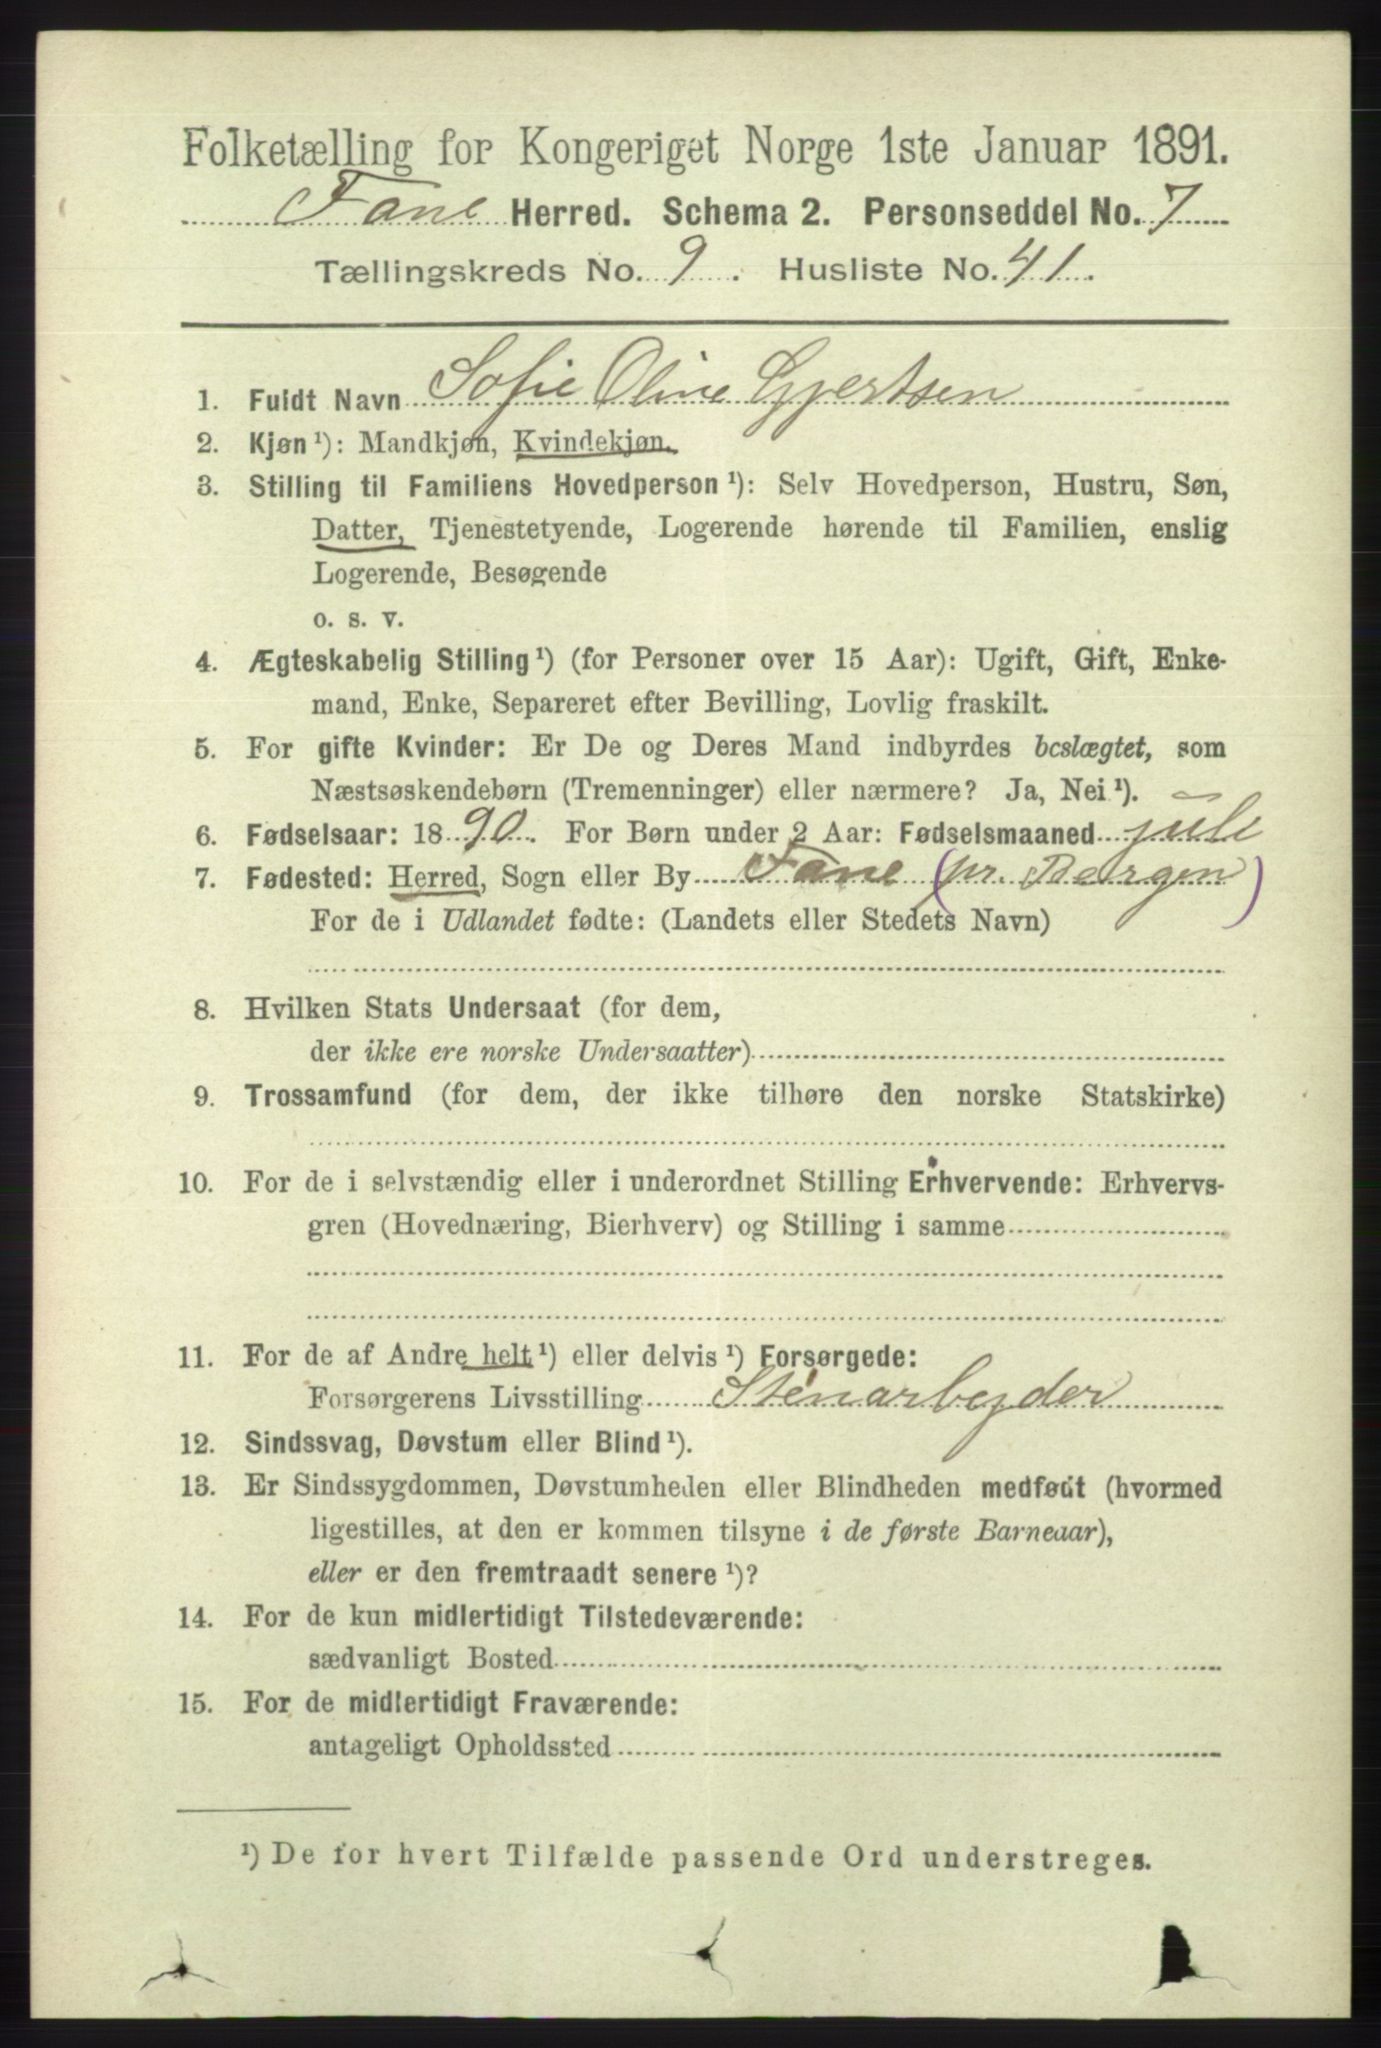 Folketælling for Kongeriget Norge 1ste Januar 1891.
Fane Herred. Schema 2. Personseddel No. 7
Tællingskreds No. 9. Husliste No. 41.
1. Fuldt Navn Sofie Oline Gjertsen
2. Kjøn¹): Mandkjøn, Kvindekjøn.
3. Stilling til Familiens Hovedperson¹): Selv Hovedperson, Hustru, Søn,
Datter, Tjenestetyende, Logerende hørende til Familien, enslig
Logerende, Besøgende
o. s. v.
4. Ægteskabelig Stilling¹) (for Personer over 15 Aar): Ugift, Gift, Enke-
mand, Enke, Separeret efter Bevilling, Lovlig fraskilt.
5. For gifte Kvinder: Er De og Deres Mand indbyrdes beslægtet, som
Næstsøskendebørn (Tremenninger) eller nærmere? Ja, Nei¹).
6. Fødselsaar: 1890. For Børn under 2 Aar: Fødselsmaaned juli
7. Fødested: Herred, Sogn eller By Fane (pr. Bergen)
For de i Udlandet fødte: (Landets eller Stedets Navn)
8. Hvilken Stats Undersaat (for dem,
der ikke ere norske Undersaatter)
9. Trossamfund (for dem, der ikke tilhøre den norske Statskirke)
10. For de i selvstændig eller i underordnet Stilling Erhvervende: Erhvervs-
gren (Hovednæring, Bierhverv) og Stilling i samme
11. For de af Andre helt¹) eller delvis¹) Forsørgede:
Forsørgerens Livsstilling Stenarbejder
12. Sindssvag, Døvstum eller Blind¹).
13. Er Sindssygdommen, Døvstumheden eller Blindheden medfødt (hvormed
ligestilles, at den er kommen tilsyne i de første Barneaar),
eller er den fremtraadt senere¹)?
14. For de kun midlertidigt Tilstedeværende:
sædvanligt Bosted
15. For de midlertidigt Fraværende:
antageligt Opholdssted
¹) De for hvert Tilfælde passende Ord understreges.